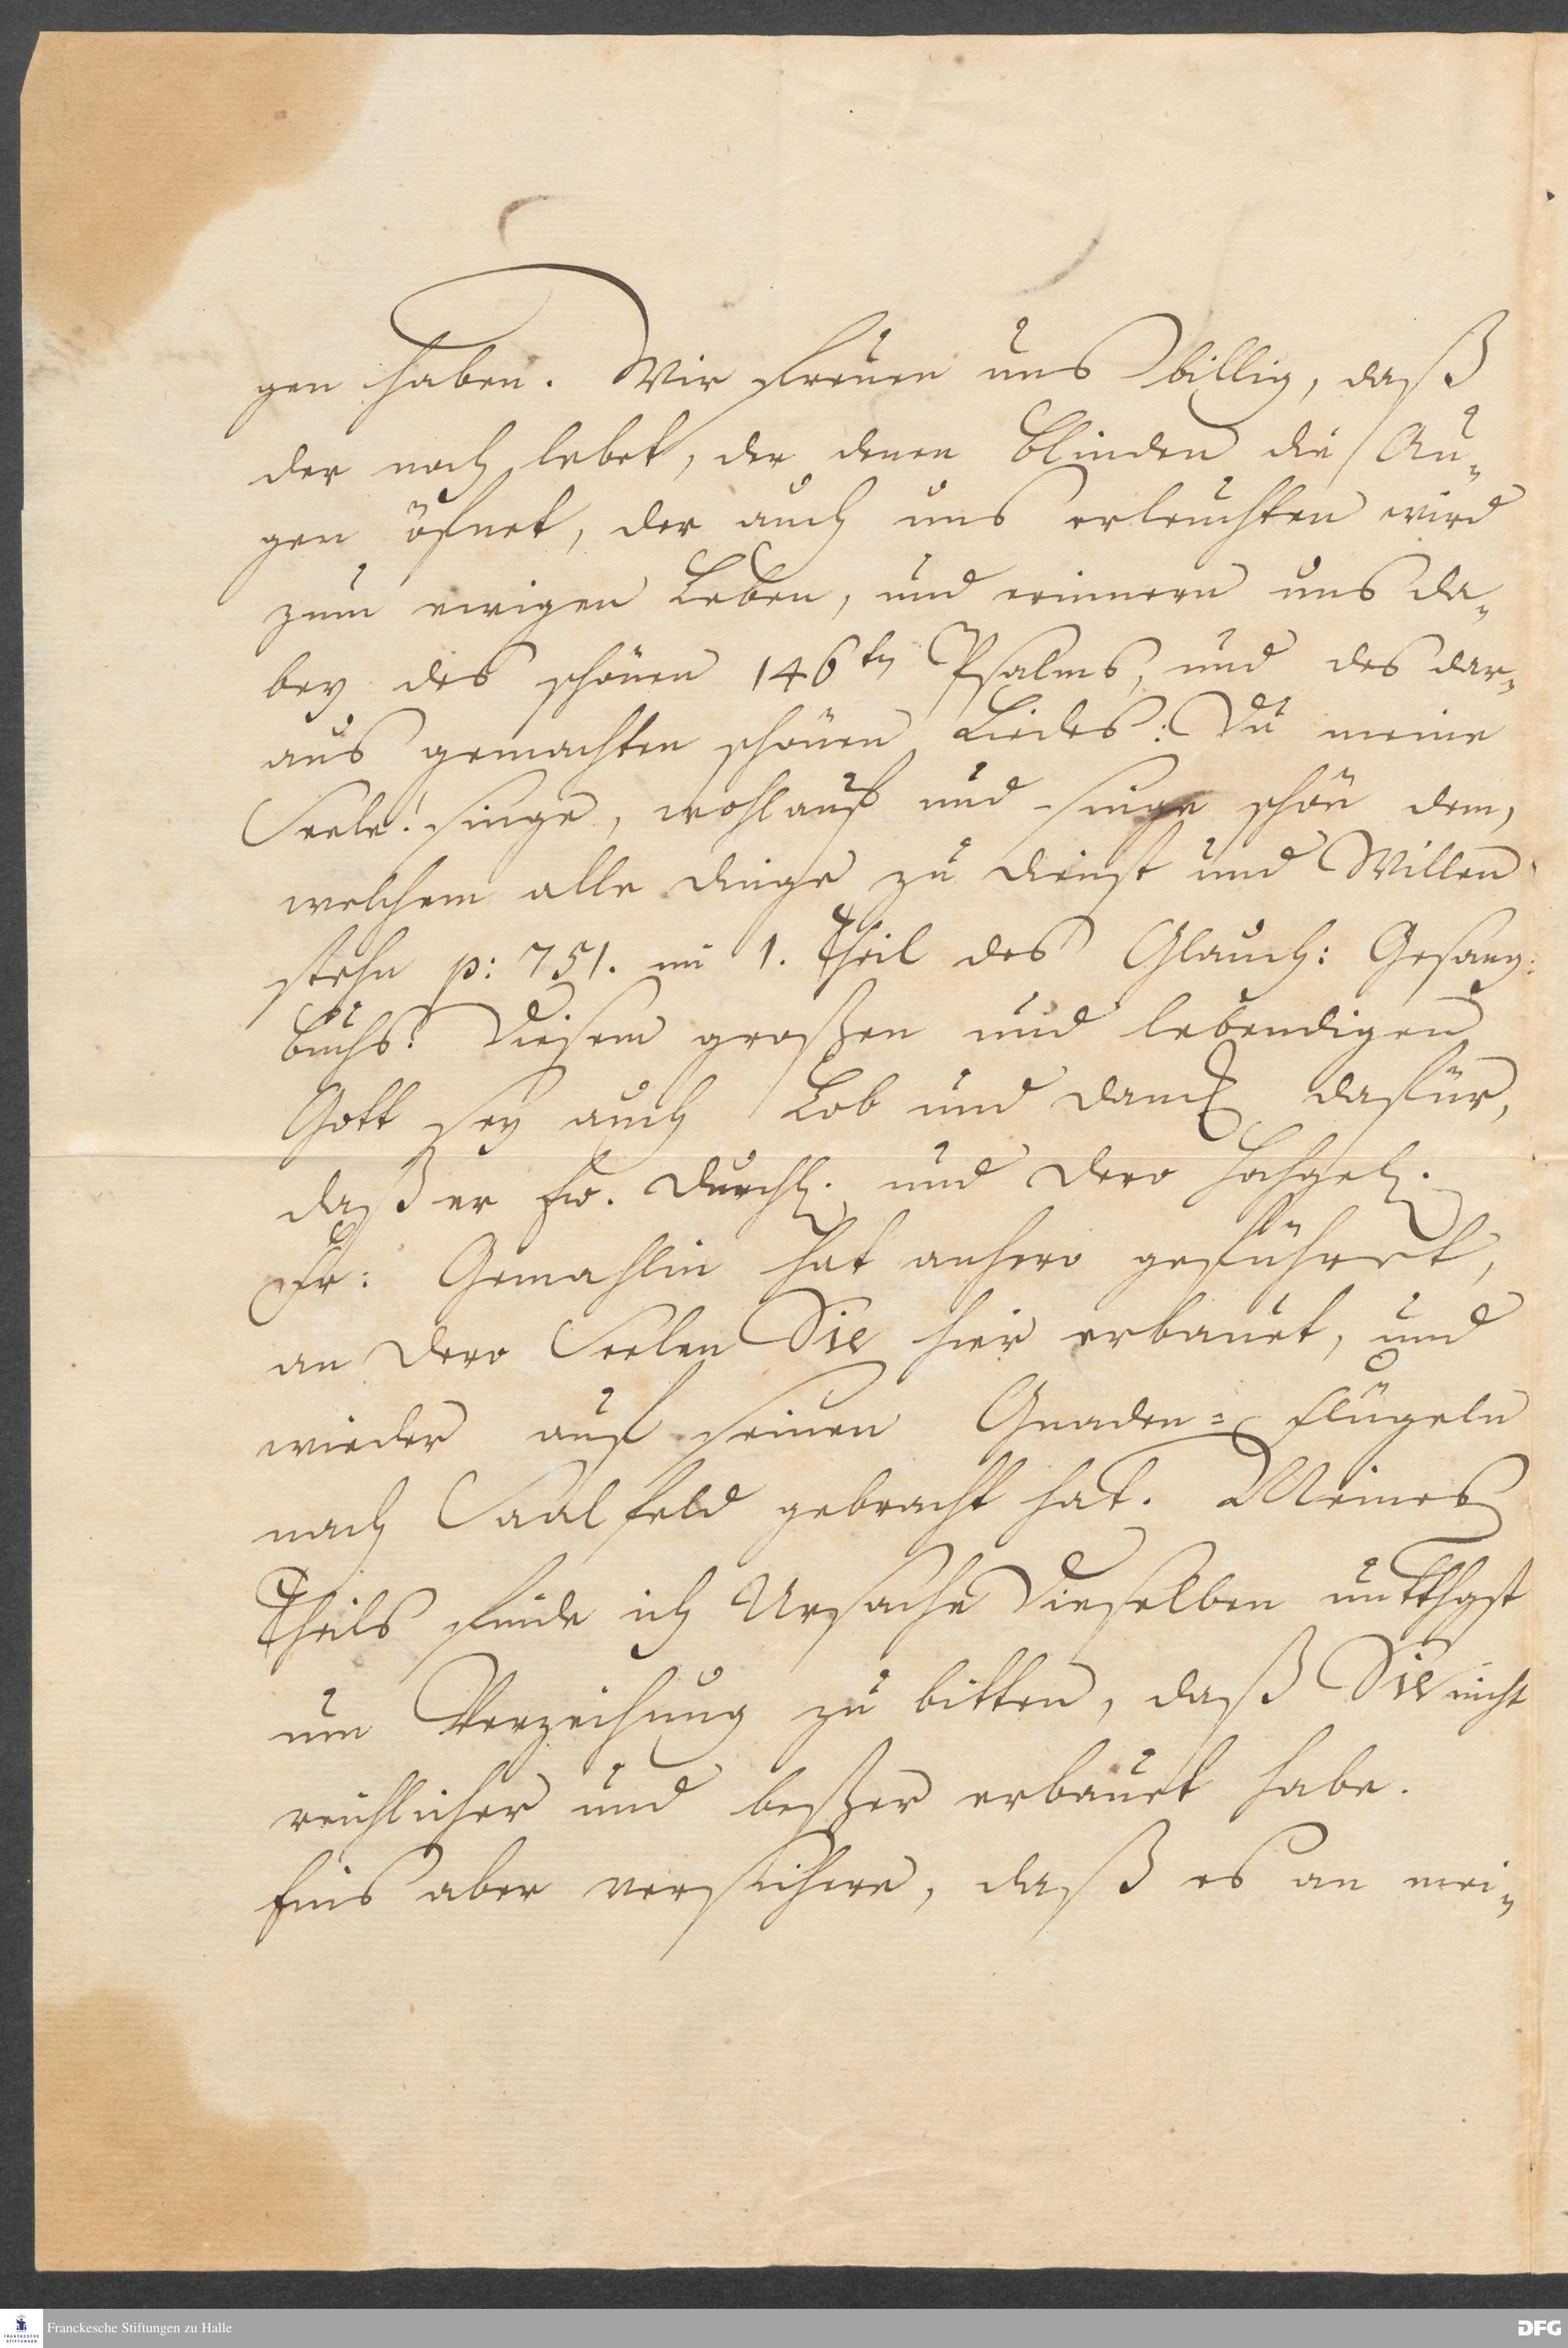 gen haben. Wir freuen uns billig, daß
der noch lebet, der denen Blinden die Au-
gen öfnet, der auch uns erleuchten wird
zum ewigen Leben, und erinnern uns da-
bey des schönen 146tn Psalms, und des dar-
aus gemachten schönen Liedes: Du meine
Seele! singe, wohlauf und singe schön dem,
welchem alle dinge zu dienst und Willen
stehn p: 751. im 1. Theil des Glauch: Gesang-
buchs. Diesem großen und lebendigen
Gott sey auch Lob und danck dafür,
daß er Ew. Durchl. und Dero Hochgel.
Fr: Gemahlin hat anhero geführet,
an Dero Seelen Sie hier erbauet, und
wieder auf seinen Gnaden-flügeln
nach Saalfeld gebracht hat. Meines
Theils finde ich Ursache Dieselben untthgst
um Verzeihung zu bitten, daß Sie nicht
reichlicher und beßer erbauet habe.
Eins aber versichere, daß es an mei-
Franckesche Stiftungen zu Halle
DFG